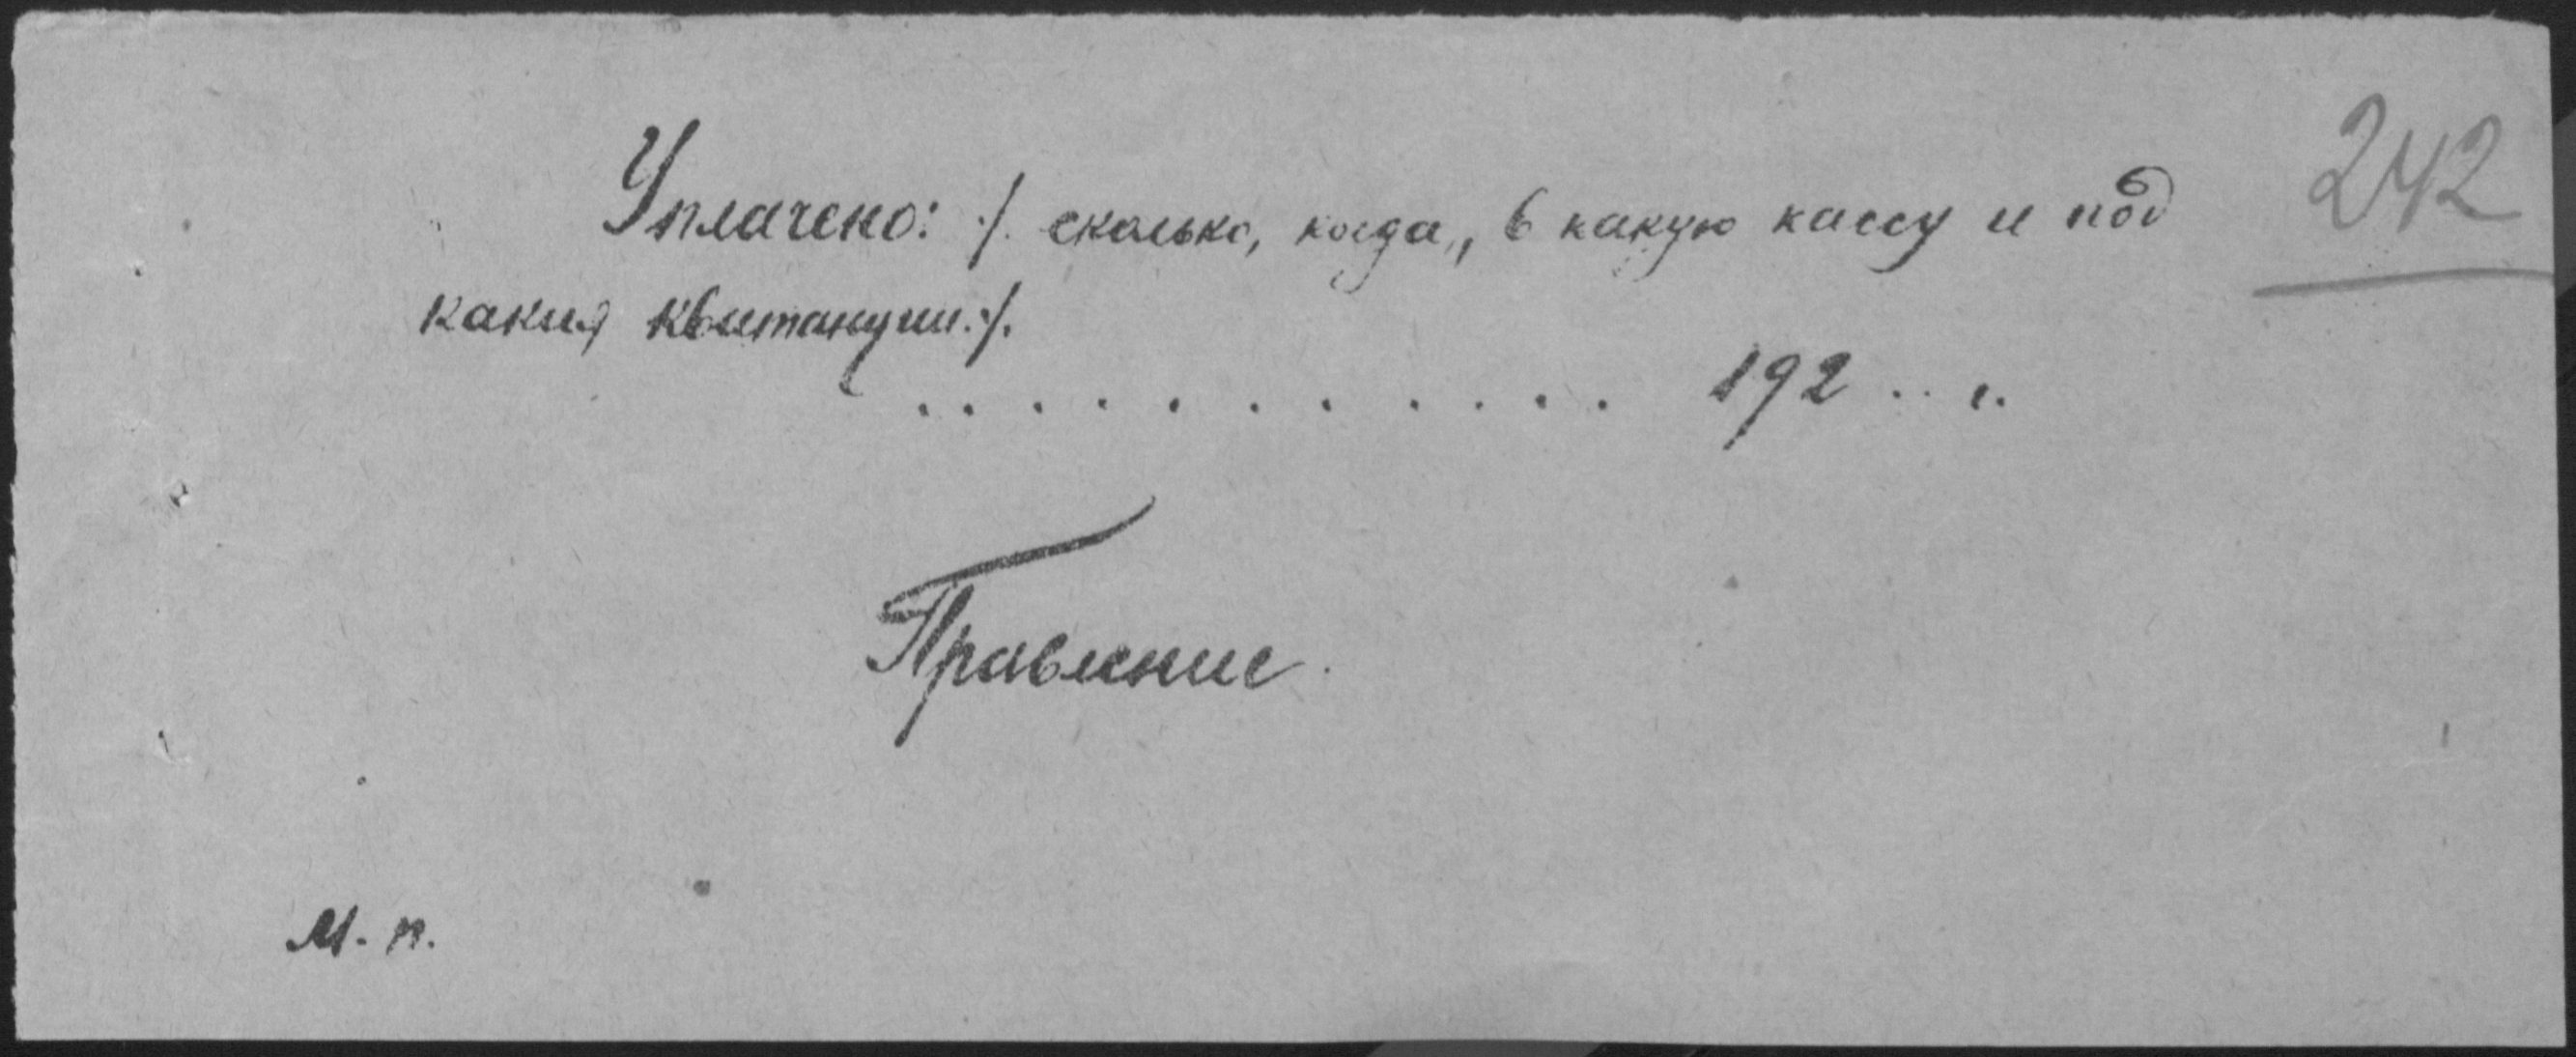 242
Уплачено: ·/. сколько, когда,, в какую кассу и под
какия квитанции.·/.
. . . . . . . . . . . 192 .. г.
Правление.
М. п.